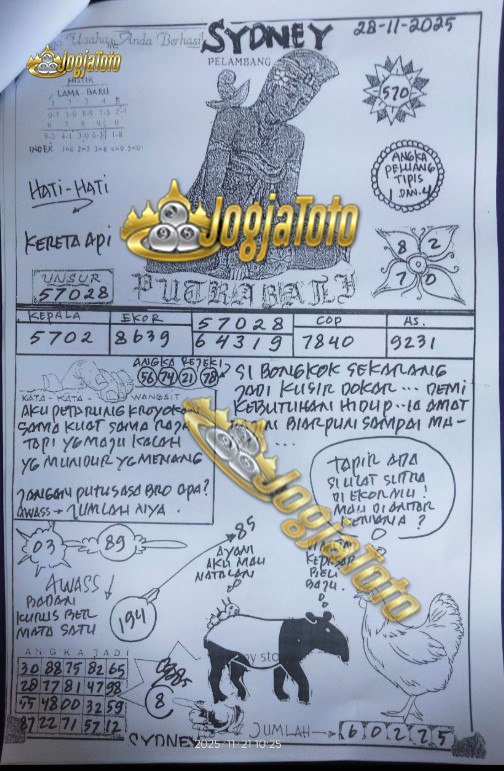 Usaha Anda Berhasil
SYDNEY
28-11-2025
JogjaToto
PELAMBANG
MISTIK
LAMA - BARU
INDEX
570
ANGKA
PELUANG
TIPIS
1 DAN 4
HATI-HATI
KERETA API
JogjaToto
8 2
7 0
UNSUR
57028
PUTRA BALI
KEPALA EKOR 57028 COP AS.
5702 8639 64319 7840 9231
ANGKA REJEKI
56 74 21 78
KATA - KATA - WANGSIT
AKU PETARUNG KROYOKAN
SAMA KUAT SAMA RAJA
TAPI YG MAJU KALAH
YG MUNDUR YG MENANG
JANGAN PUTUS ASA BRO APA?
AWASS → JUMLAH NYA.
SI BONGKOK SEKARANG
JADI KUSIR DOKAR ... DEMI
KEBUTUHAN HIDUP
BIARPUN SAMPAI
JogjaToto
TAPIR ADA
SILUAT SUTRA
DI EKORMU!
MAU DI ANTAR
KEMANA?
03 89
85
AYAM
AKU MAU
NATALAN
BELI
BAJU.
AWASS
BADAN
KURUS BER
MATA SATU
194
ANGKA JADI
30 88 75 82 65
28 77 81 47 98
55 48 00 32 59
87 22 71 57 12
8
JUMLAH → 60225
SYDNEY
2025. 11. 21 10:25